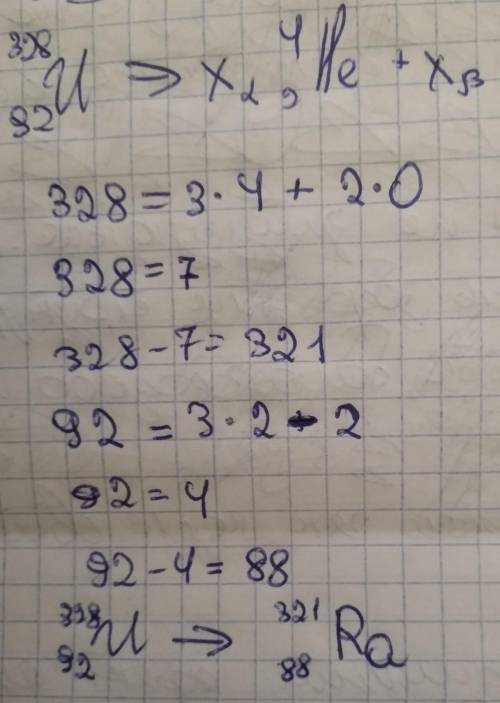 ³²⁸₉₂U ⇒ X₂ ⁴₂He + Xβ
328 = 3·4 + 2·0
328 = 7
328 - 7 = 321
92 = 3·2 - 2
92 = 4
92 - 4 = 88
³²⁸₉₂U → ³²¹₈₈Ra